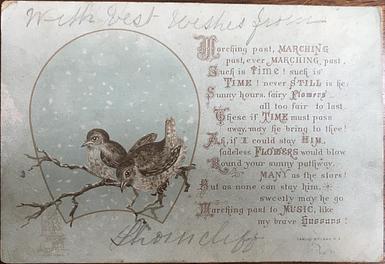 With best wishes from
Marching past, MARCHING
past, ever MARCHING past,
Such is Time! such is
TIME! never STILL is he;
Sunny hours, fairy Flowers
all too fair to last
These if TIME must pass
away, may he bring to thee!
Ah, if I could stay HIM,
fadeless FLOWERS would blow
Round your sunny pathway,
MANY as the stars!
But as none can stay him,
sweetly may he go
Marching past to MUSIC, like
my brave Hussars!